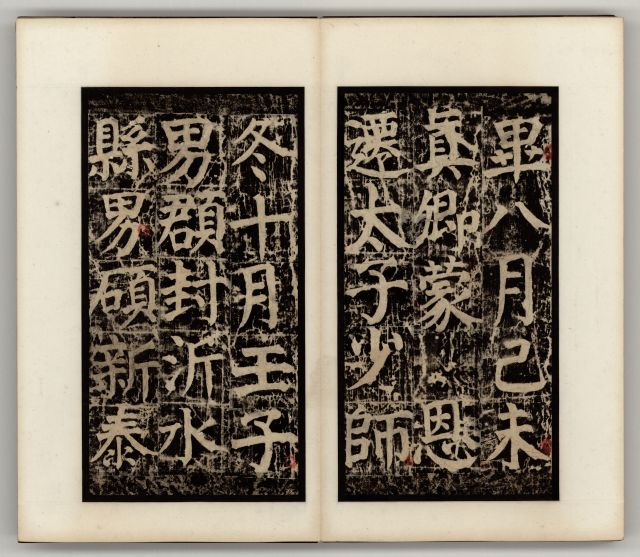 畢八月己未
眞卿蒙 恩
遷太子少師
冬十月壬子
男頵封沂水
縣男碩新泰